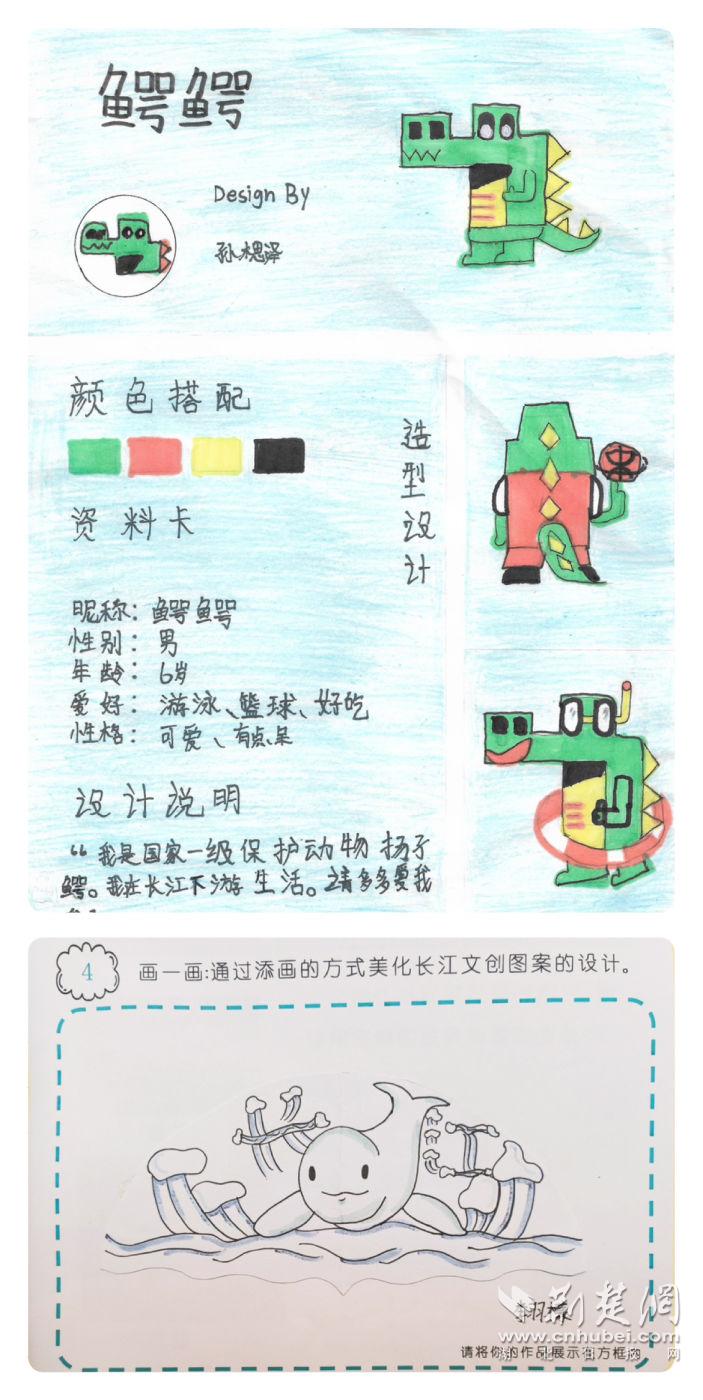 鳄鳄
Design By
颜色搭配
造型设计
资料卡
昵称：鳄鳄
性别：男
年龄：6岁
爱好：游泳、篮球、好吃
性格：可爱、有点呆
设计说明
“我是国家一级保护动物扬子
鳄。我在长江下游生活。请多多爱我
4
画一画:通过添画的方式美化长江文创图案的设计。
荆楚网
www.cnhubei.com
请将你的作品展示在方框内